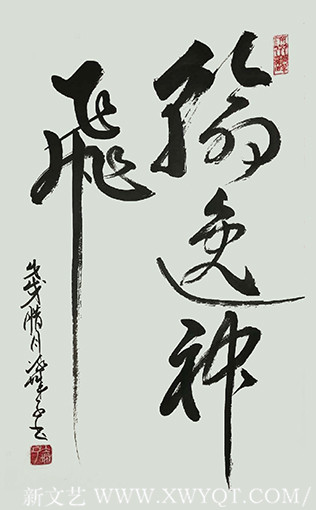 翰逸神
飛
戊戌腊月
新文艺 WWW.XWYQT.COM